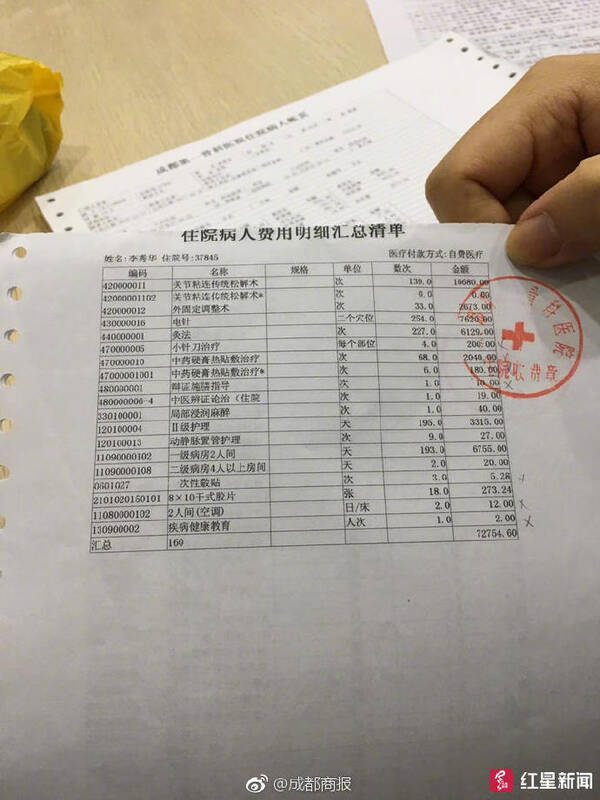 住院病人费用明细汇总清单
姓名:李秀华 住院号:37845 医疗付款方式:自费医疗
编码 名称 规格 单位 数次 金额
420000011 关节粘连传统松解术 次 139.0
42000001102 关节粘连传统松解术* 次 0.0 0.00
420000012 外固定调整术 次 33.0 2673.00
430000016 电针 二个穴位 254.0 7620.00
440000001 灸法 次 227.0 6129.00
470000005 小针刀治疗 每个部位 4.0 200.00
470000010 中药硬膏热贴敷治疗 次 68.0 2040.00
47000001001 中药硬膏热贴敷治疗* 次 6.0 180.00
480000001 辩证施膳指导 次 1.0 10.00
480000006-4 中医辨证论治(住院 次 1.0 19.00
330100001 局部浸润麻醉 次 1.0 40.00
120100004 Ⅱ级护理 天 195.0 3315.00
120100013 动静脉置管护理 次 9.0 27.00
11090000102 一级病房2人间 天 193.0 6755.00
11090000108 二级病房4人以上房间 天 2.0 20.00
0601027 一次性敷贴 次 3.0 5.28
2101020150101 8×10干式胶片 张 18.0 273.24
11080000102 2人间(空调) 日/床 2.0 12.00
130900002 疾病健康教育 人次 1.0 2.00
汇总 160 72754.60
@成都商报
红星新闻